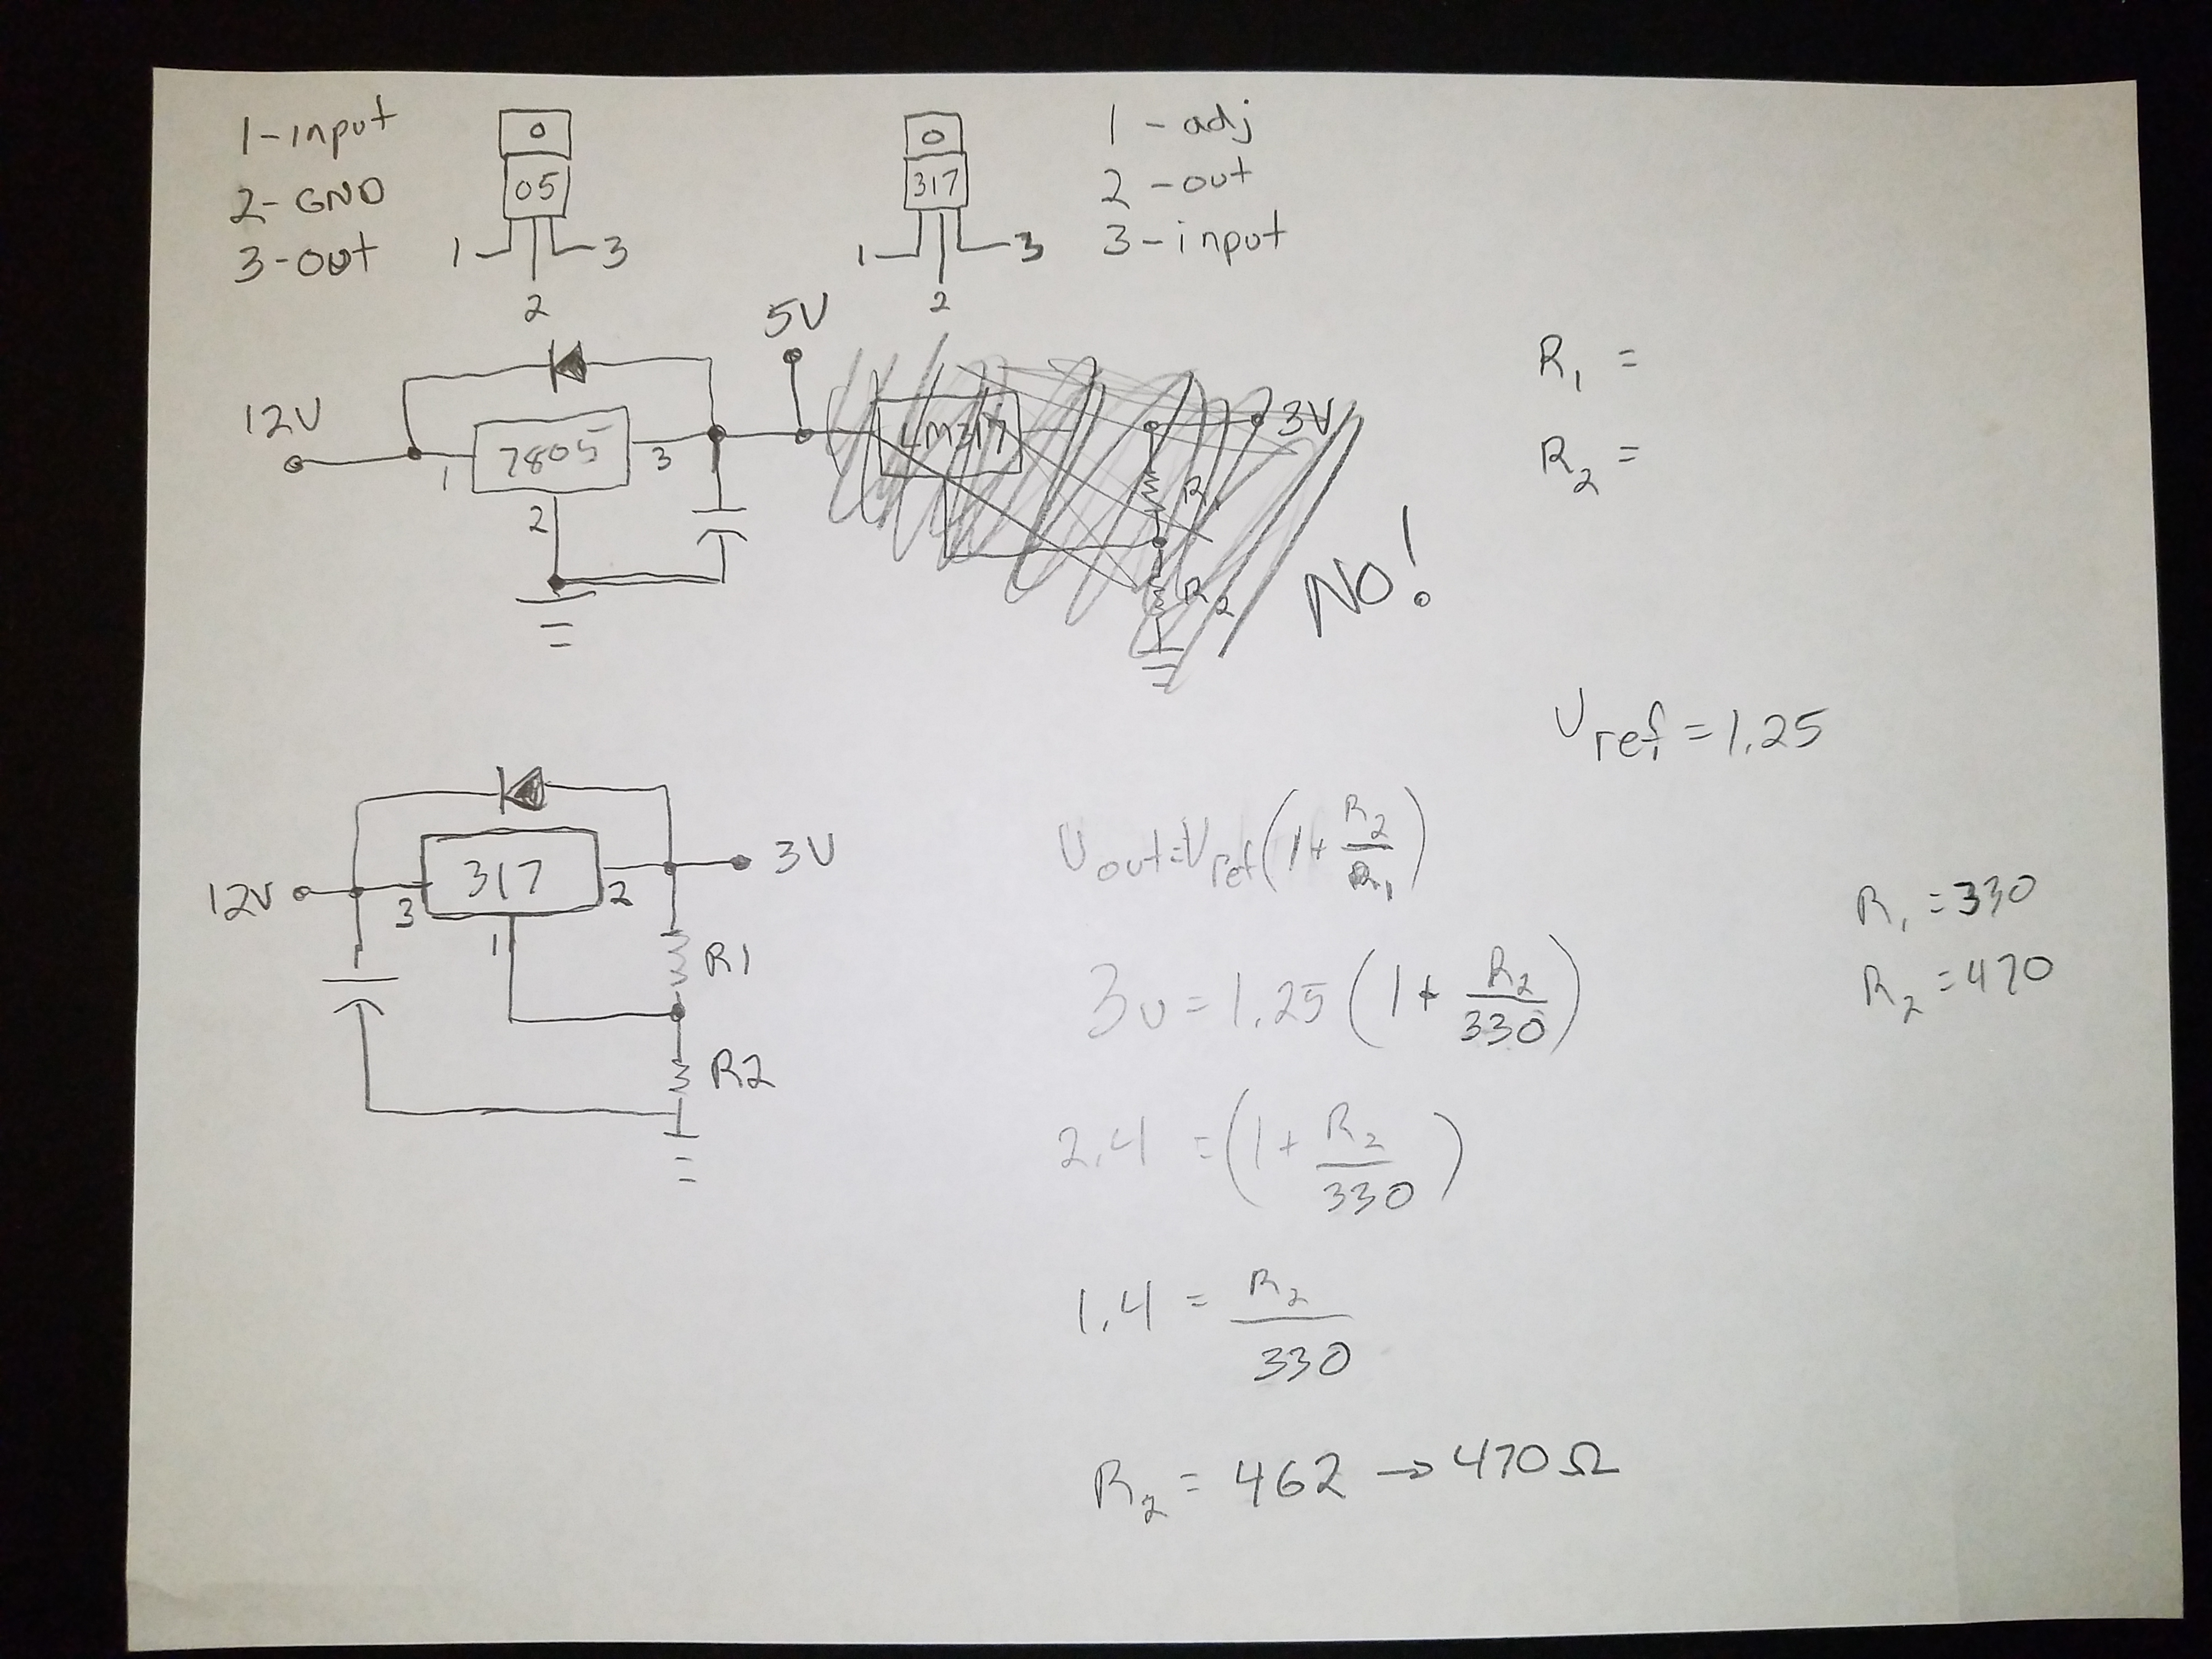 1-input
2-GND
3-out
0
05
1
2
3
0
317
1
2
3
1 - adj
2 - out
3 - input
12V
1
7805
3
2
5V
LM317
3V
R1
R2
NO!
R1 =
R2 =
Vref = 1.25
12V
3
317
2
1
3V
R1
R2
Vout=Vref(1+R2/R1)
3v = 1.25(1+R2/330)
2.4 = (1+R2/330)
1.4 = R2/330
R2 = 462 → 470Ω
R1 = 330
R2 = 470